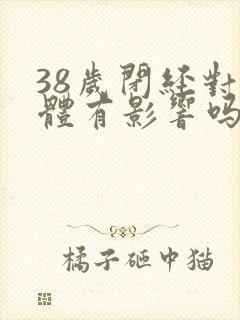 38歲閉経對
體有影響吗
橘子砸中猫